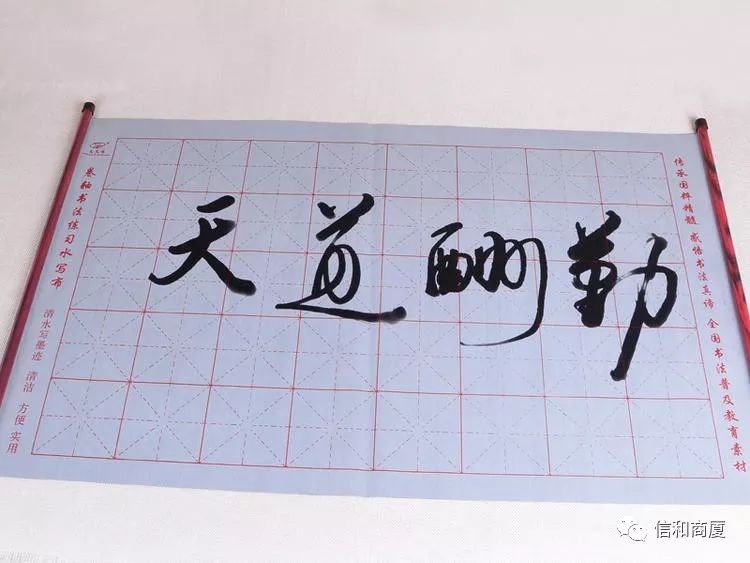 天道酬勤
卷轴书法练习水写布
清水写墨迹 清洁 方便 实用
传承国粹精髓 感悟书法真谛 全国书法普及教育素材
信和商厦